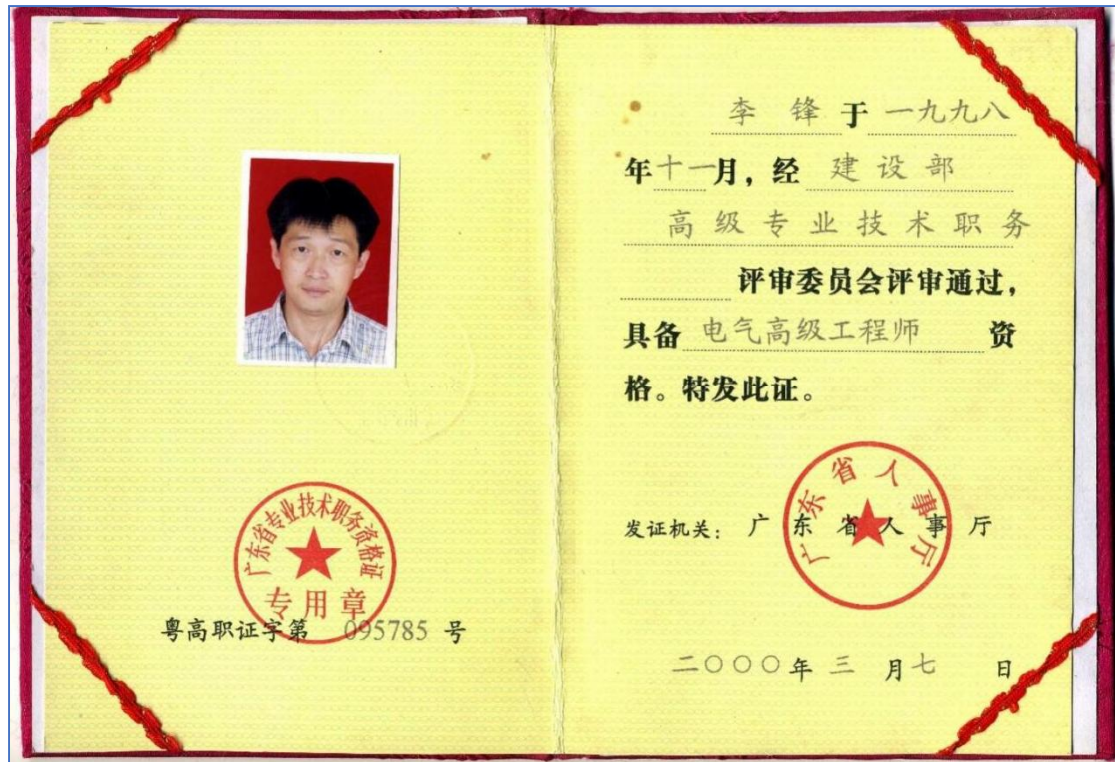 广东省专业技术职务资格证
专用章
粤高职证字第 095785 号
李锋于一九九八
年十一月，经建设部
高级专业技术职务
评审委员会评审通过，
具备电气高级工程师资
格。特发此证。
广东省人事厅
发证机关：广东省人事厅
二〇〇〇年三月七日